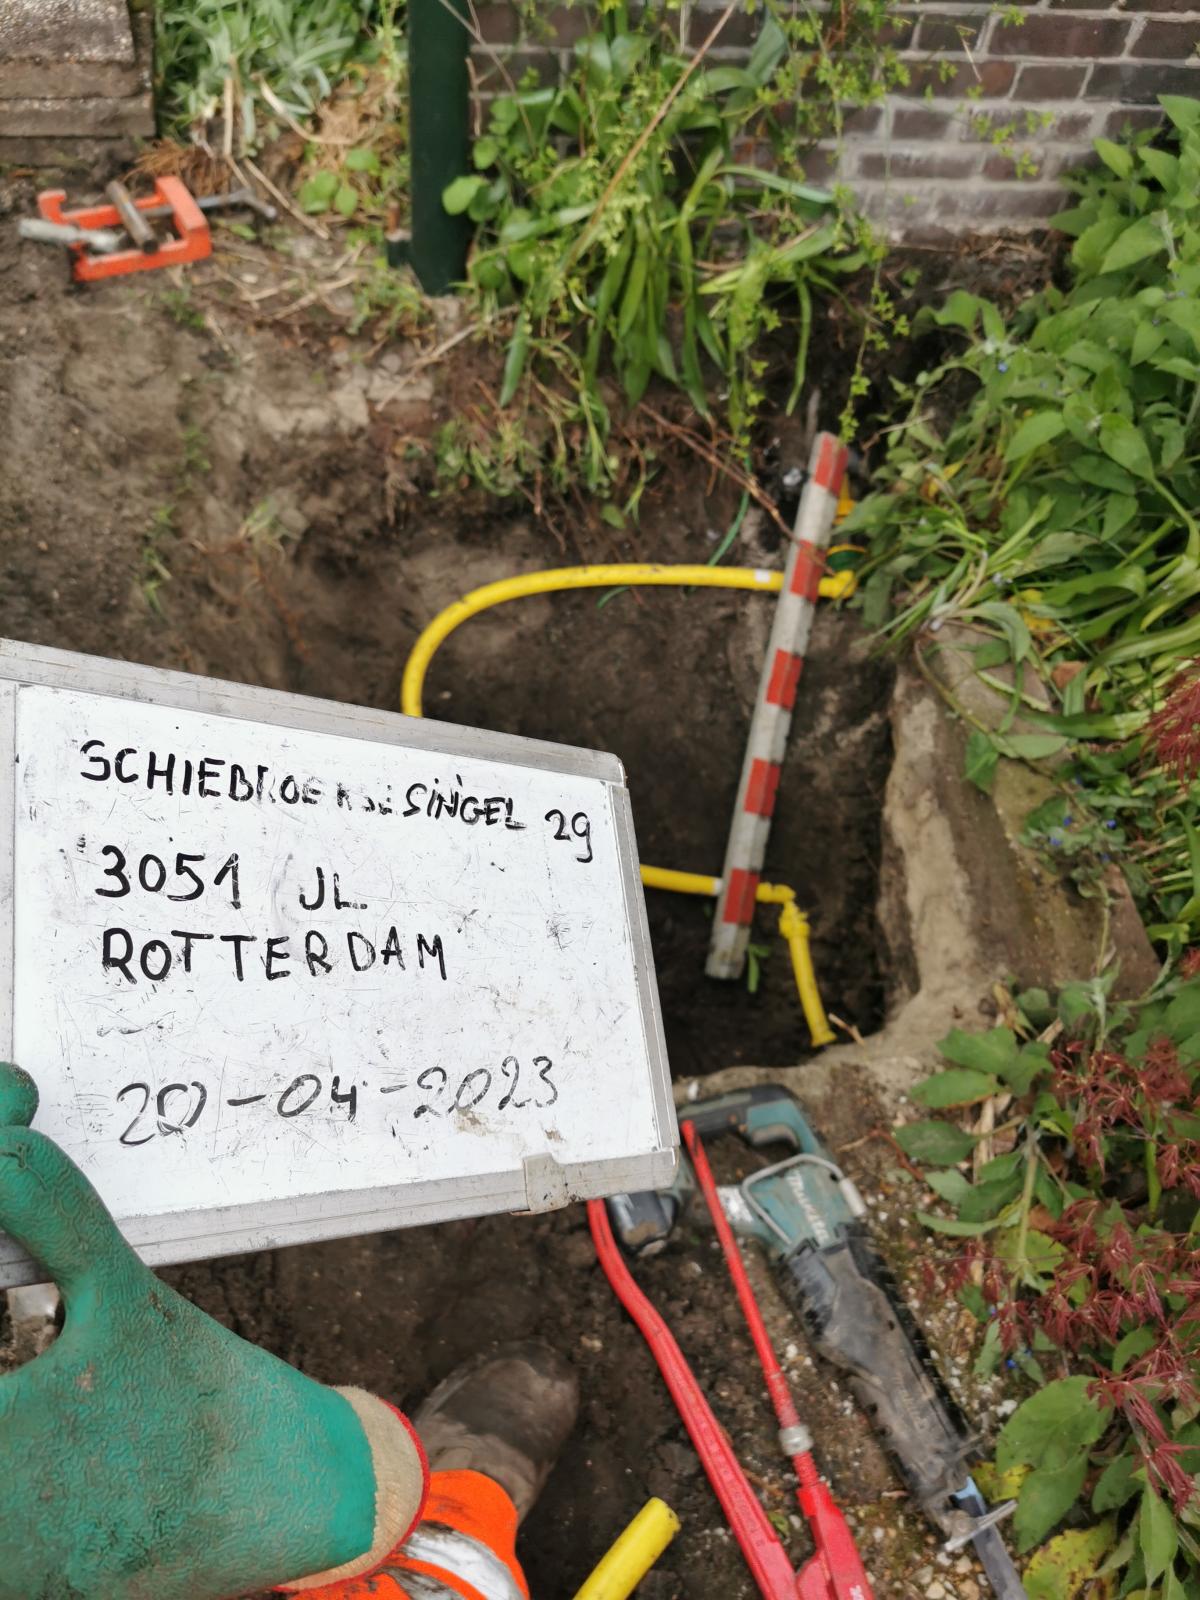 SCHIEBROEKSESINGEL 29
3051 JL
ROTTERDAM
20-04-2023
makita